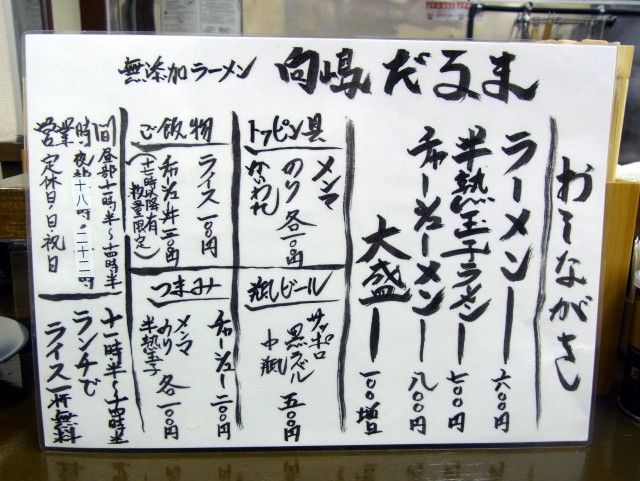 無添加ラーメン 向嶋だるま
おしながき
ラーメン 六〇〇円
半熟玉子ラーメン 七〇〇円
チャーシューメン 八〇〇円
大盛 一〇〇増
トッピング具
メンマ
のり 各一〇〇円
かいわれ
瓶ビール
サッポロ
黒ラベル 五〇〇円
中瓶
ご飯物
ライス 一〇〇円
チャーシュー丼 二〇〇円
(十七時以降有
数量限定)
つまみ
チャーシュー 二〇〇円
メンマ
のり 各一〇〇円
半熟玉子
営業時間 昼部 十一時半〜十四時半
夜部 十八時〜二十二時
定休日・日祝日
十一時半〜十四時半
ランチで
ライス一杯無料